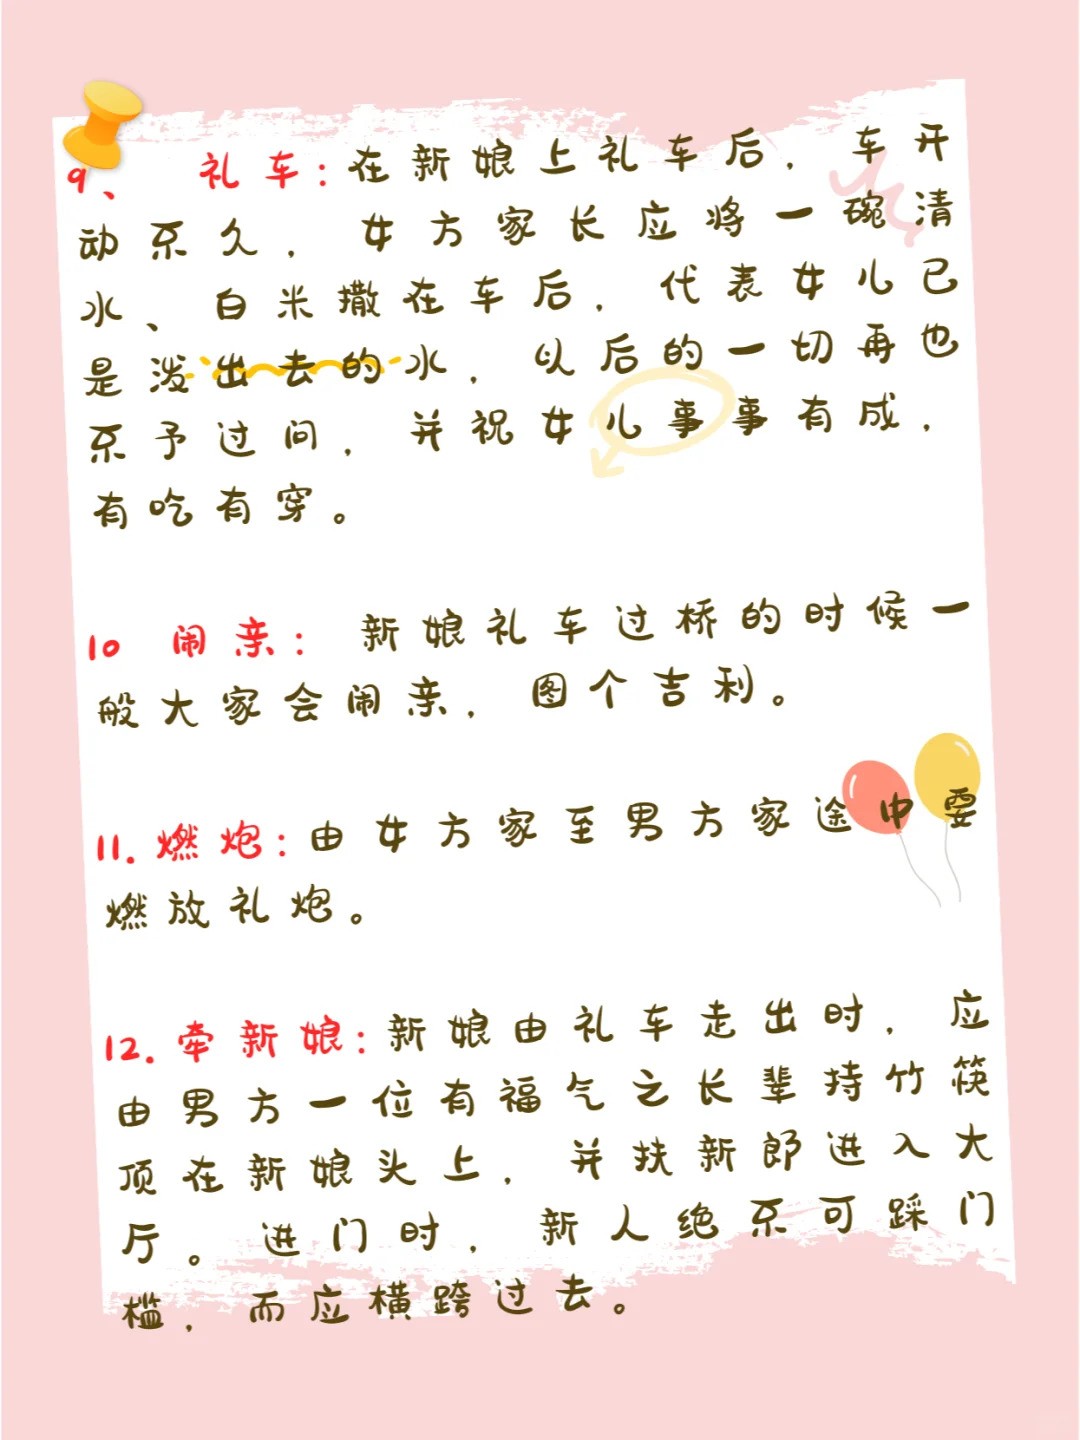 9、 礼车:在新娘上礼车后，车开
动不久，女方家长应将一碗清
水、白米撒在车后，代表女儿已
是泼出去的水，以后的一切再也
不予过问，并祝女儿事事有成，
有吃有穿。
10 闹亲: 新娘礼车过桥的时候一
般大家会闹亲，图个吉利。
11.燃炮:由女方家至男方家途中要
燃放礼炮。
12.牵新娘:新娘由礼车走出时，应
由男方一位有福气之长辈持竹筷
顶在新娘头上，并扶新郎进入大
厅。进门时，新人绝不可踩门
槛，而应横跨过去。